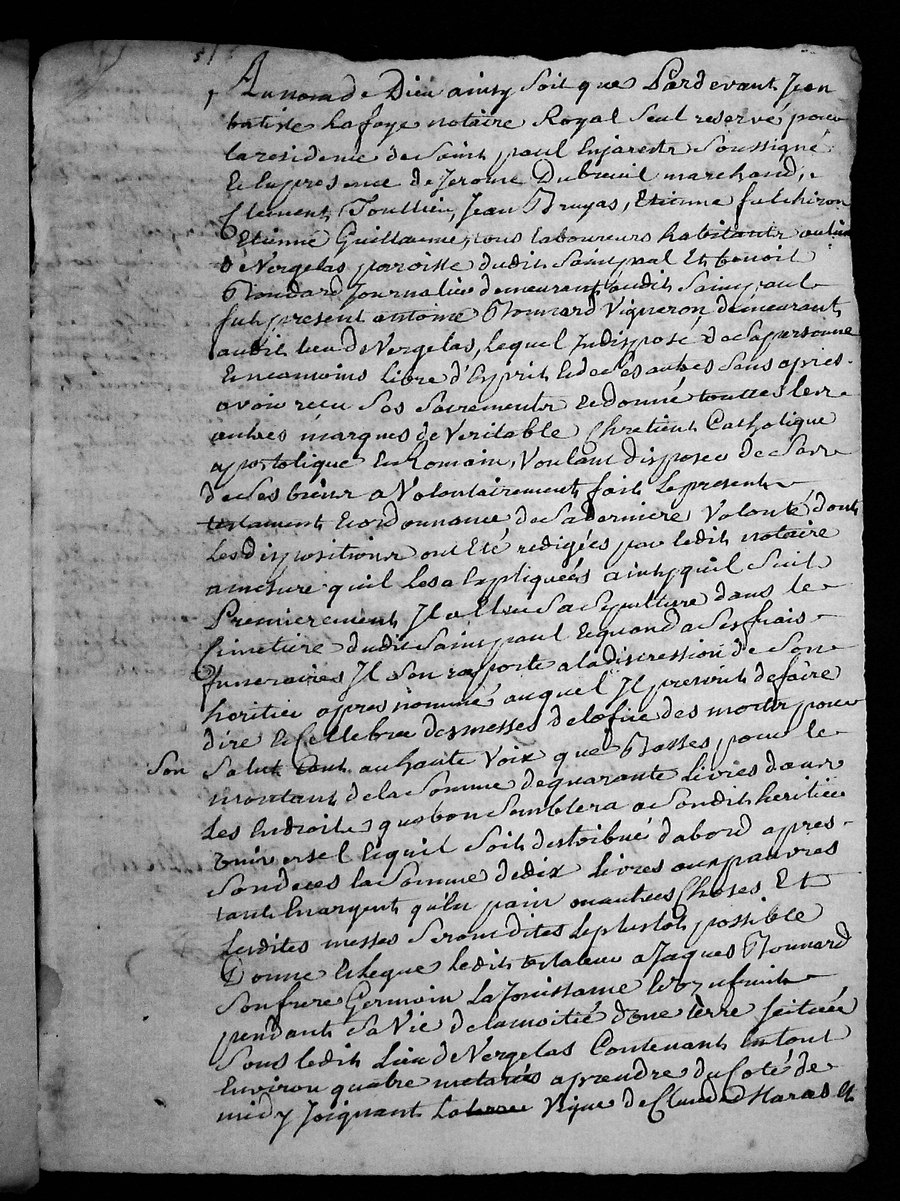 Au nom de Dieu ainsy soit que Pardevant Jean
batiste Lafaye notaire Royal Seul reservé pour
la residence de Saint paul En jarestz Soussigné
et En presence de Jerome Dubreuil marchand,
Clement Toullieu, Jean Bruyas, Etienne fulchiron
Etienne Guillaume, tous laboureurs habitants au lieu
de Vergelas parroisse dudit Saint paul Et benoit
Bondard Journalier demeurant audit Saint paul
fut present antoine Bonnard Vigneron demeurant
audit lieu de Vergelas, lequel Indisposé de Sa personne
Et neamoins libre d'Esprit et de Ses autres Sens apres
avoir reçu Ses Sacrements et donné touttes les
autres marques de Veritable Chretient Catholique
apostolique et Romain, Voulant disposer de
de Ses biens a Volontairement fait le present
testament et ordonnance de Sa derniere Volonté dont
les dispositions ont Eté redigées par ledit notaire
a mesure qu'il les a Expliquées ainsy quil Suit
Premierement Il a Elu Sa Sepulture dans le
Cimetiere dudit Saint paul Et quand a Ses frais
funeraires Il S'en raporte a la discression de Son
heritier apres nommé auquel Il prescrit de faire
dire et Cellebrer des messes de lofice des morts pour
Son
Salut tant au haute Voix que Basses, pour le
montant de la Somme de quarante livres dans
les Endroits que bon Semblera a Sondit heritier
universel Et quil Soit distribué d'abord apres
Son deces la Somme de dix livres aux pauvres
tant En argent qu'En pain ou autres Choses Et
lesdites messes Seront dites le plustot possible
Donne et legue ledit testateur a Jaques Bonnard
Son frere Germain La Jouissance et Usufruit
pendant Sa Vie de la moitié d'une terre Scituée
Sous ledit lieu de Vergelas Contenant En tout
Environ quatre metarés a prendre du Coté de
midy Joignant La terre Vigne de Claude Haras et